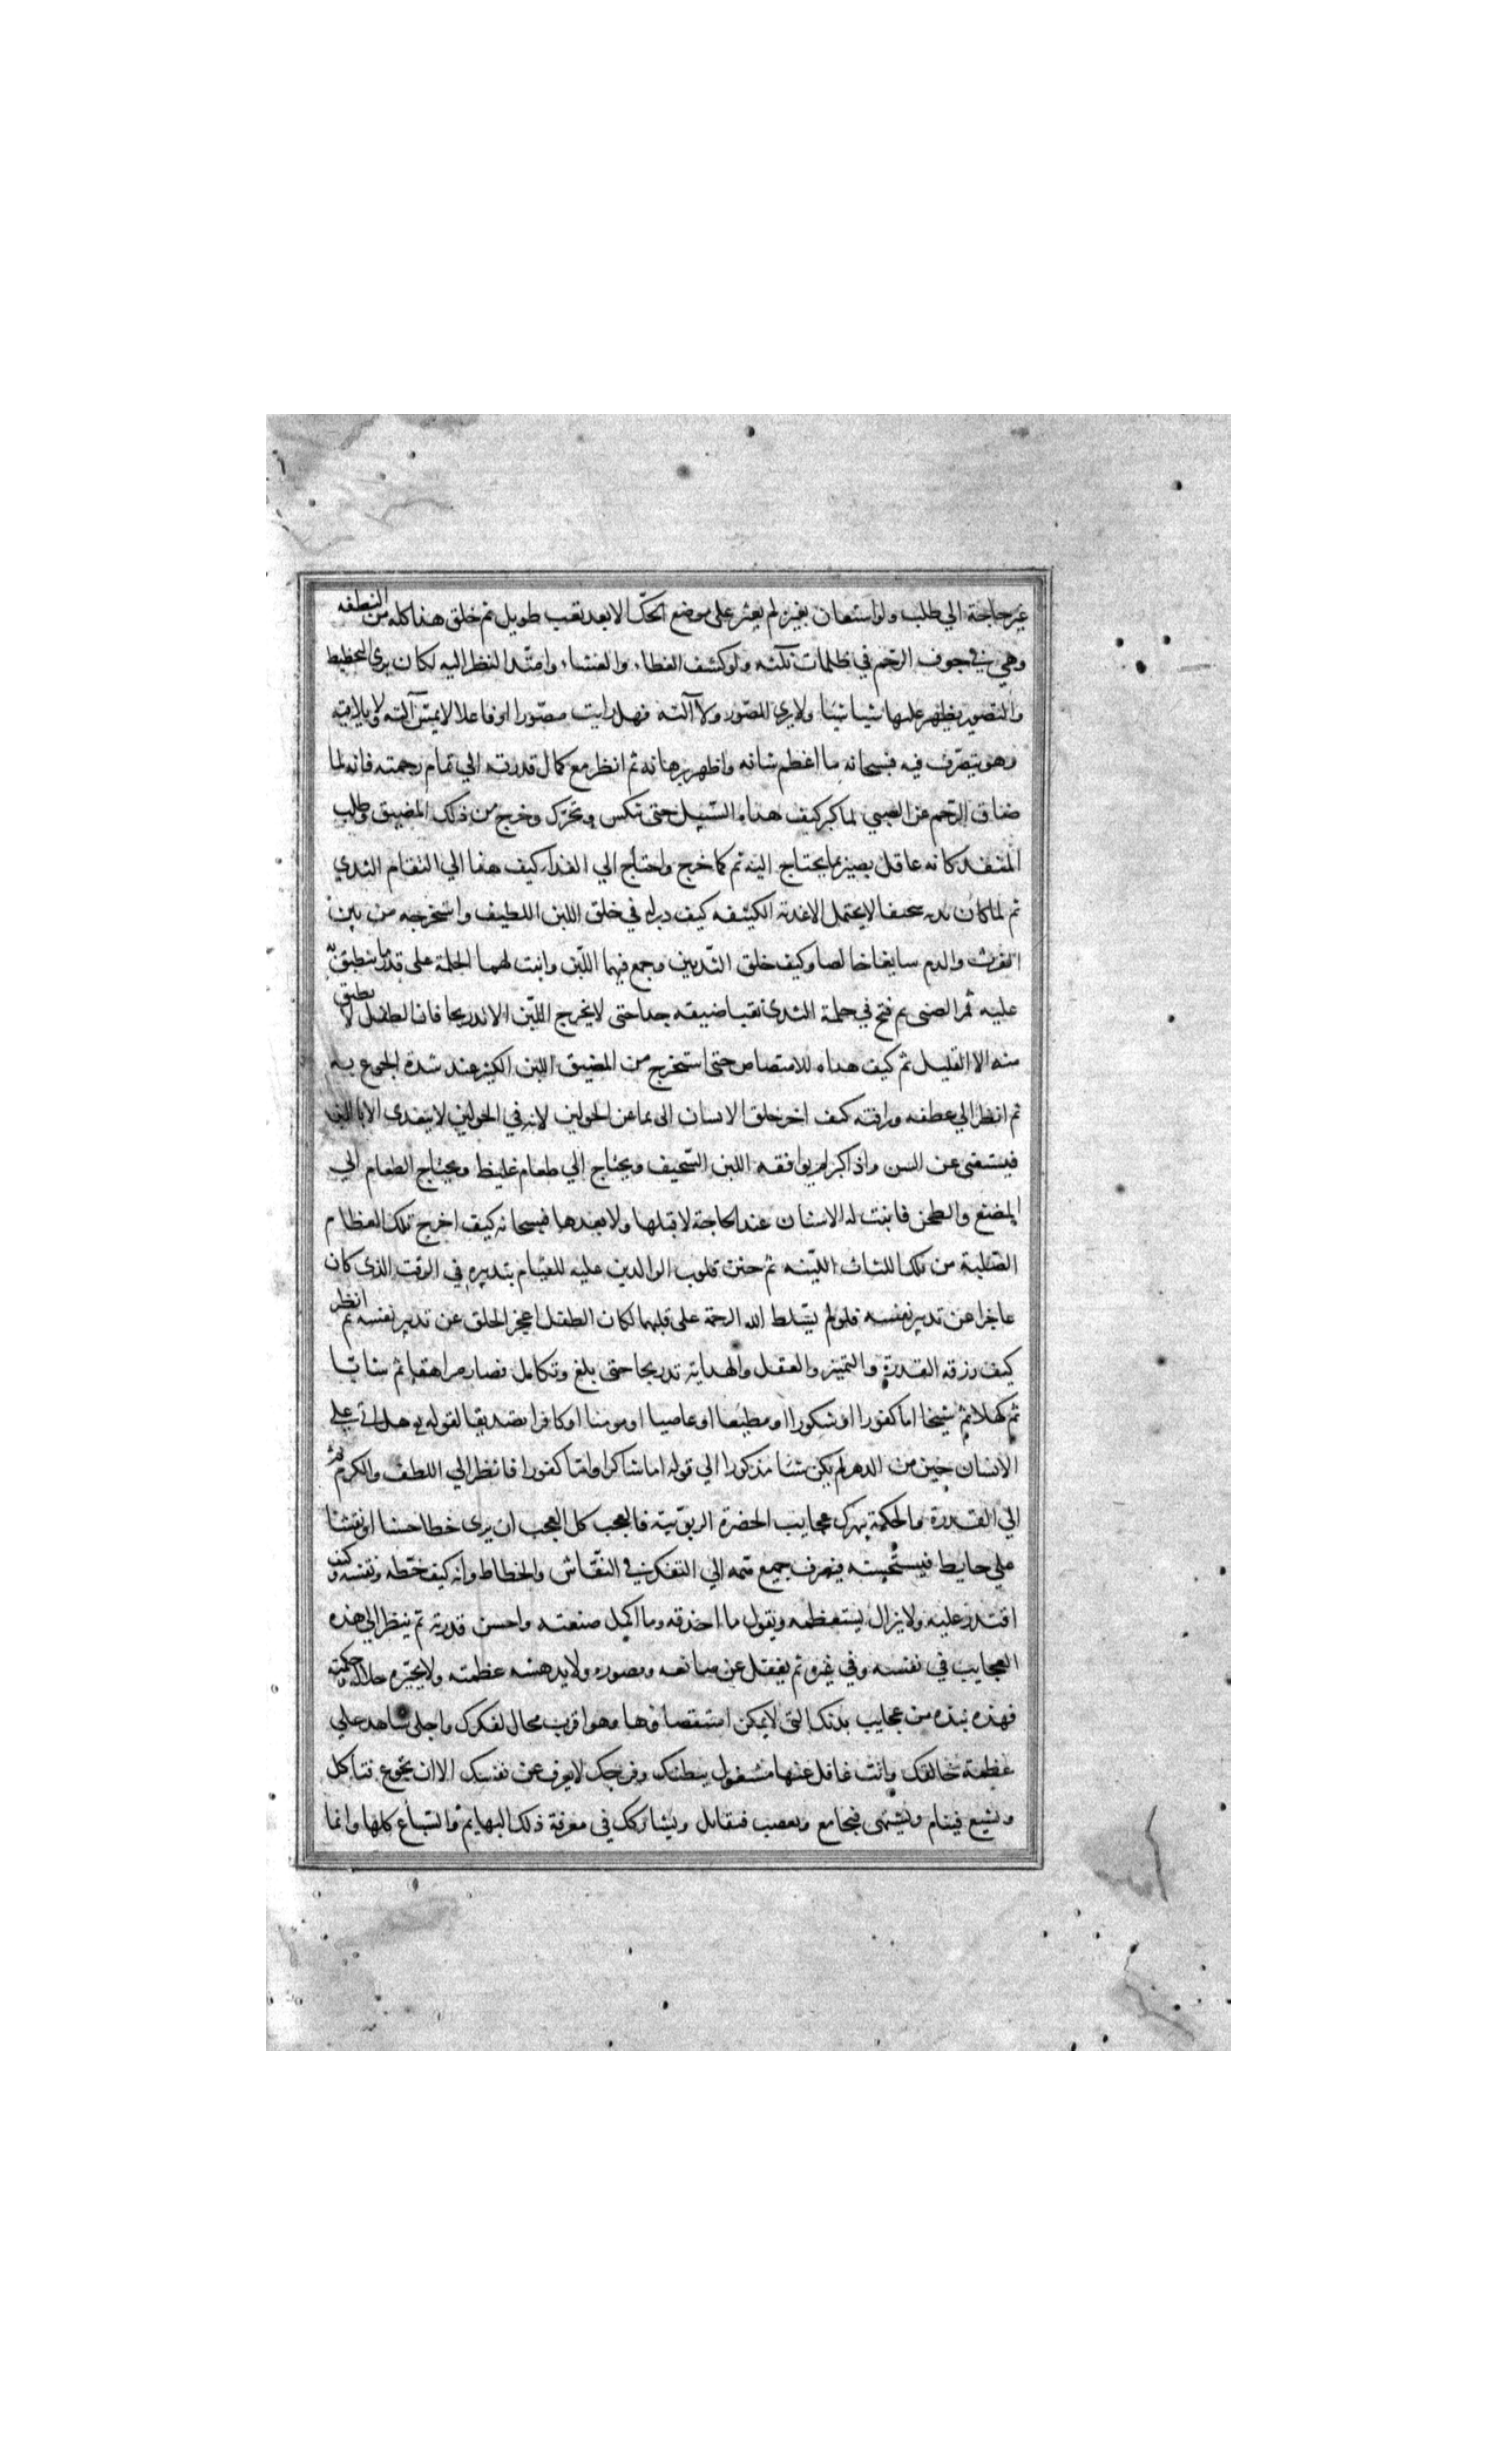 غير حاجة الي طلب ولو استعان بغيره لم يعثر علي موضع الحك الا بعد تعب طويل ثم خلق هذا كله من النطفه
وهي في جوف الرحم في ظلمات ثلثه ولو كشف الغطاء والغشاء وامتد النظر اليه لكان يري التخطيط
والتصوير يظهر عليها شيا شيئا ولا يري المصور ولا آلته فهل رايت مصورا او فاعلا لا يمس آلته ولا يلاقيه
وهو يتصرف فيه فسبحانه ما اعظم شانه واظهر برهانه ثم انظر مع كمال قدرته الي تمام رحمته فانه لما
ضاق الرحم عن الصبي لما كبر كيف هداه السبيل حتي تنكس وتحرك وخرج من ذلك المضيق وطلب
المنفد كانه عاقل بصير بما يحتاج اليه ثم لما خرج واحتاج الي الغذاء كيف هداه الي التقام الثدي
ثم لما كان بدنه سخيفا لا يحتمل الاغذية الكثيفه كيف دبر له في خلق اللبن اللطيف واستخرجه من بين
الفرث والدم سايغا خالصا وكيف خلق الثديين وجمع فيهما اللبن وانبت لهما الحلمة علي قدر ما ينطبق
عليه فم الصبي ثم فتح في حلمة الثدي ثقبا ضيقه جدا حتى لا يخرج اللبن الا تدريجا فان الطفل لا يطيق
منه الا القليل ثم كيف هداه للامتصاص حتى استخرج من المضيق اللبن الكثير عند شدة الجوع به
ثم انظر الي عطفه ورافته كيف اخر خلق الاسنان الى تمام الحولين لانه في الحولين لا يتغدى الا باللبن
فيستغنى عن السن واذا كبر لم يوافقه اللبن السخيف ويحتاج الي طعام غليظ ويحتاج الطعام الي
المضغ والطحن فانبت له الاسنان عند الحاجة لا قبلها ولا بعدها فسبحانه كيف اخرج تلك العظام
الصلبة من تلك اللثات اللينه ثم حنن قلوب الوالدين عليه للقيام بتدبيره في الوقت الذي كان
عاجزا عن تدبير نفسه فلو لم يسلط الله الرحمة على قلبهما لكان الطفل اعجز الخلق عن تدبير نفسه ثم انظر
كيف رزقه القدرة والتمييز والعقل والهداية تدريجا حتى بلغ وتكامل فصار مراهقا ثم شابا
ثم كهلا ثم شيخا اما كفورا او شكورا او مطيعا او عاصيا او مومنا او كافرا تصديقا لقوله تع هل اتى علي
الانسان حين من الدهر لم يكن شيئا مذكورا الي قوله اما شاكرا واما كفورا فانظر الي اللطف والكرم ثم
الي القدرة والحكمة يبهرك عجايب الحضرة الربوبية فالعجب كل العجب ان يرى خطا حسنا او نقشا
علي حايط فيستحسنه فيصرف جميع همه الي التفكر في النقاش والخطاط وانه كيف خطه ونقشه وكيف
اقتدر عليه ولا يزال يستعظمه ويقول ما احذقه وما اكمل صنعته واحسن قدرته ثم ينظر الي هذه
العجايب في نفسه وفي غيره ثم يغفل عن صانعه ومصوره ولا يدهشه عظمته ولا يحيره جلاله وحكمته
فهذه نبذه من عجايب بدنك التي لا يمكن استقصاوها وهو اقرب مجال لفكرك واجلى شاهد علي
عظمة خالقك وانت غافل عنها مشغول ببطنك وفرجك لا يعرف عن نفسك الا ان تجوع فتاكل
وتشبع فينام ويشتهى فيجامع ويغضب فيقاتل ويشاركك في معرفة ذلك البهايم والسباع كلها وانما